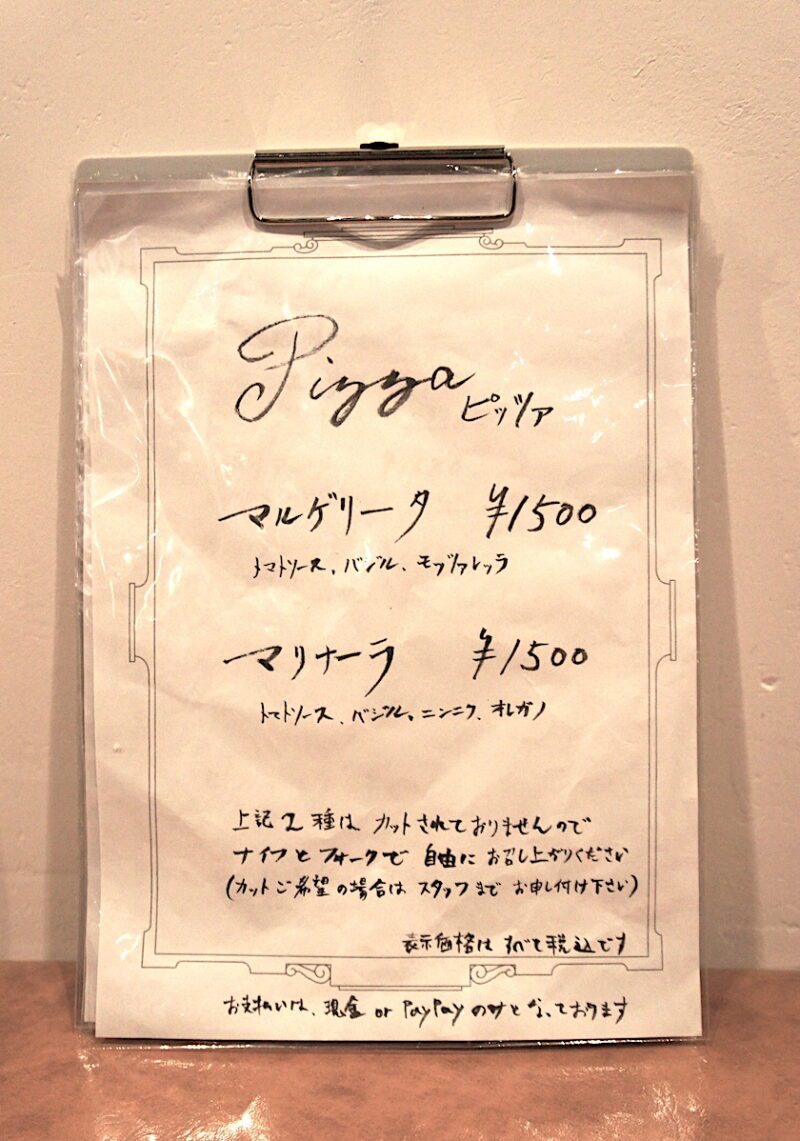 Pizza
ピッツァ
マルゲリータ ¥1500
トマトソース、バジル、モッツァレッラ
マリナーラ ¥1500
トマトソース、バジル、ニンニク、オレガノ
上記2種は カットされておりませんので
ナイフとフォークで 自由に お召し上がりください
(カットご希望の場合は スタッフまで お申し付け下さい)
表示価格は すべて税込です
お支払いは、現金 or PayPay のみと なっております